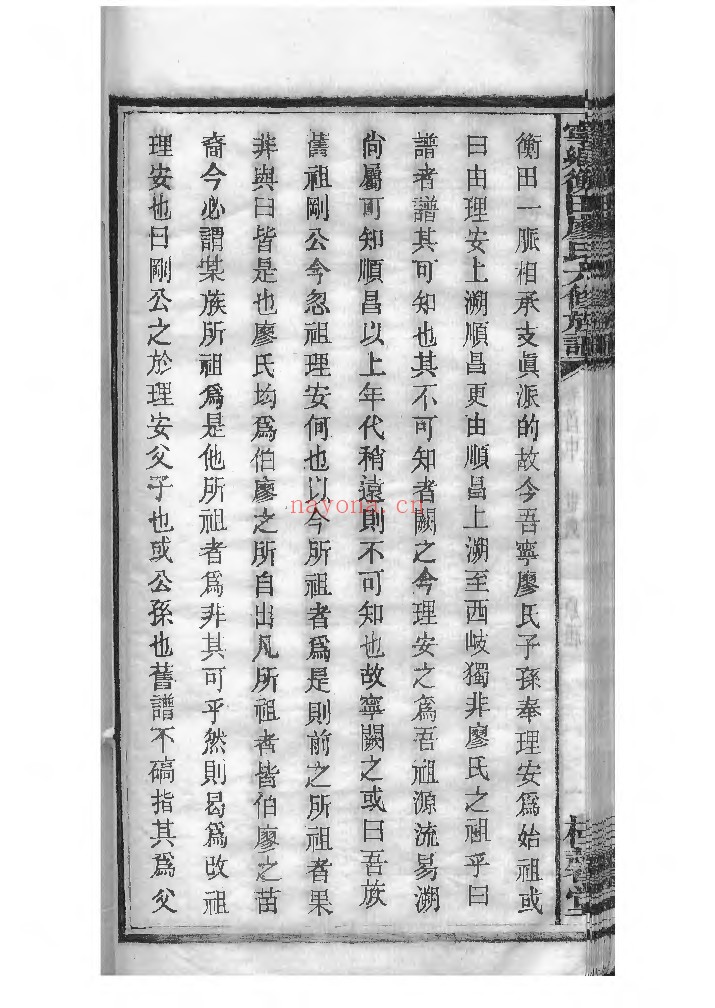 衡田一脈相承支眞派的故今吾寧廖氏子孫奉理安爲始祖或
曰由理安上溯順昌更由順昌上溯至西岐獨非廖氏之祖乎曰
譜者譜其可知也其不可知者闕之今理安之爲吾祖源流易溯
尙屬可知順昌以上年代稍遠則不可知也故寧闕之或曰吾族
舊祖剛公今忽祖理安何也以今所祖者爲是則前之所祖者果
非與曰皆是也廖氏均爲伯廖之所自出凡所祖者皆伯廖之苗
裔今必謂某族所祖爲是他所祖者爲非其可乎然則曷爲改祖
理安也曰剛公之於理安父子也或公孫也舊譜不碻指其爲父
nayona.cn